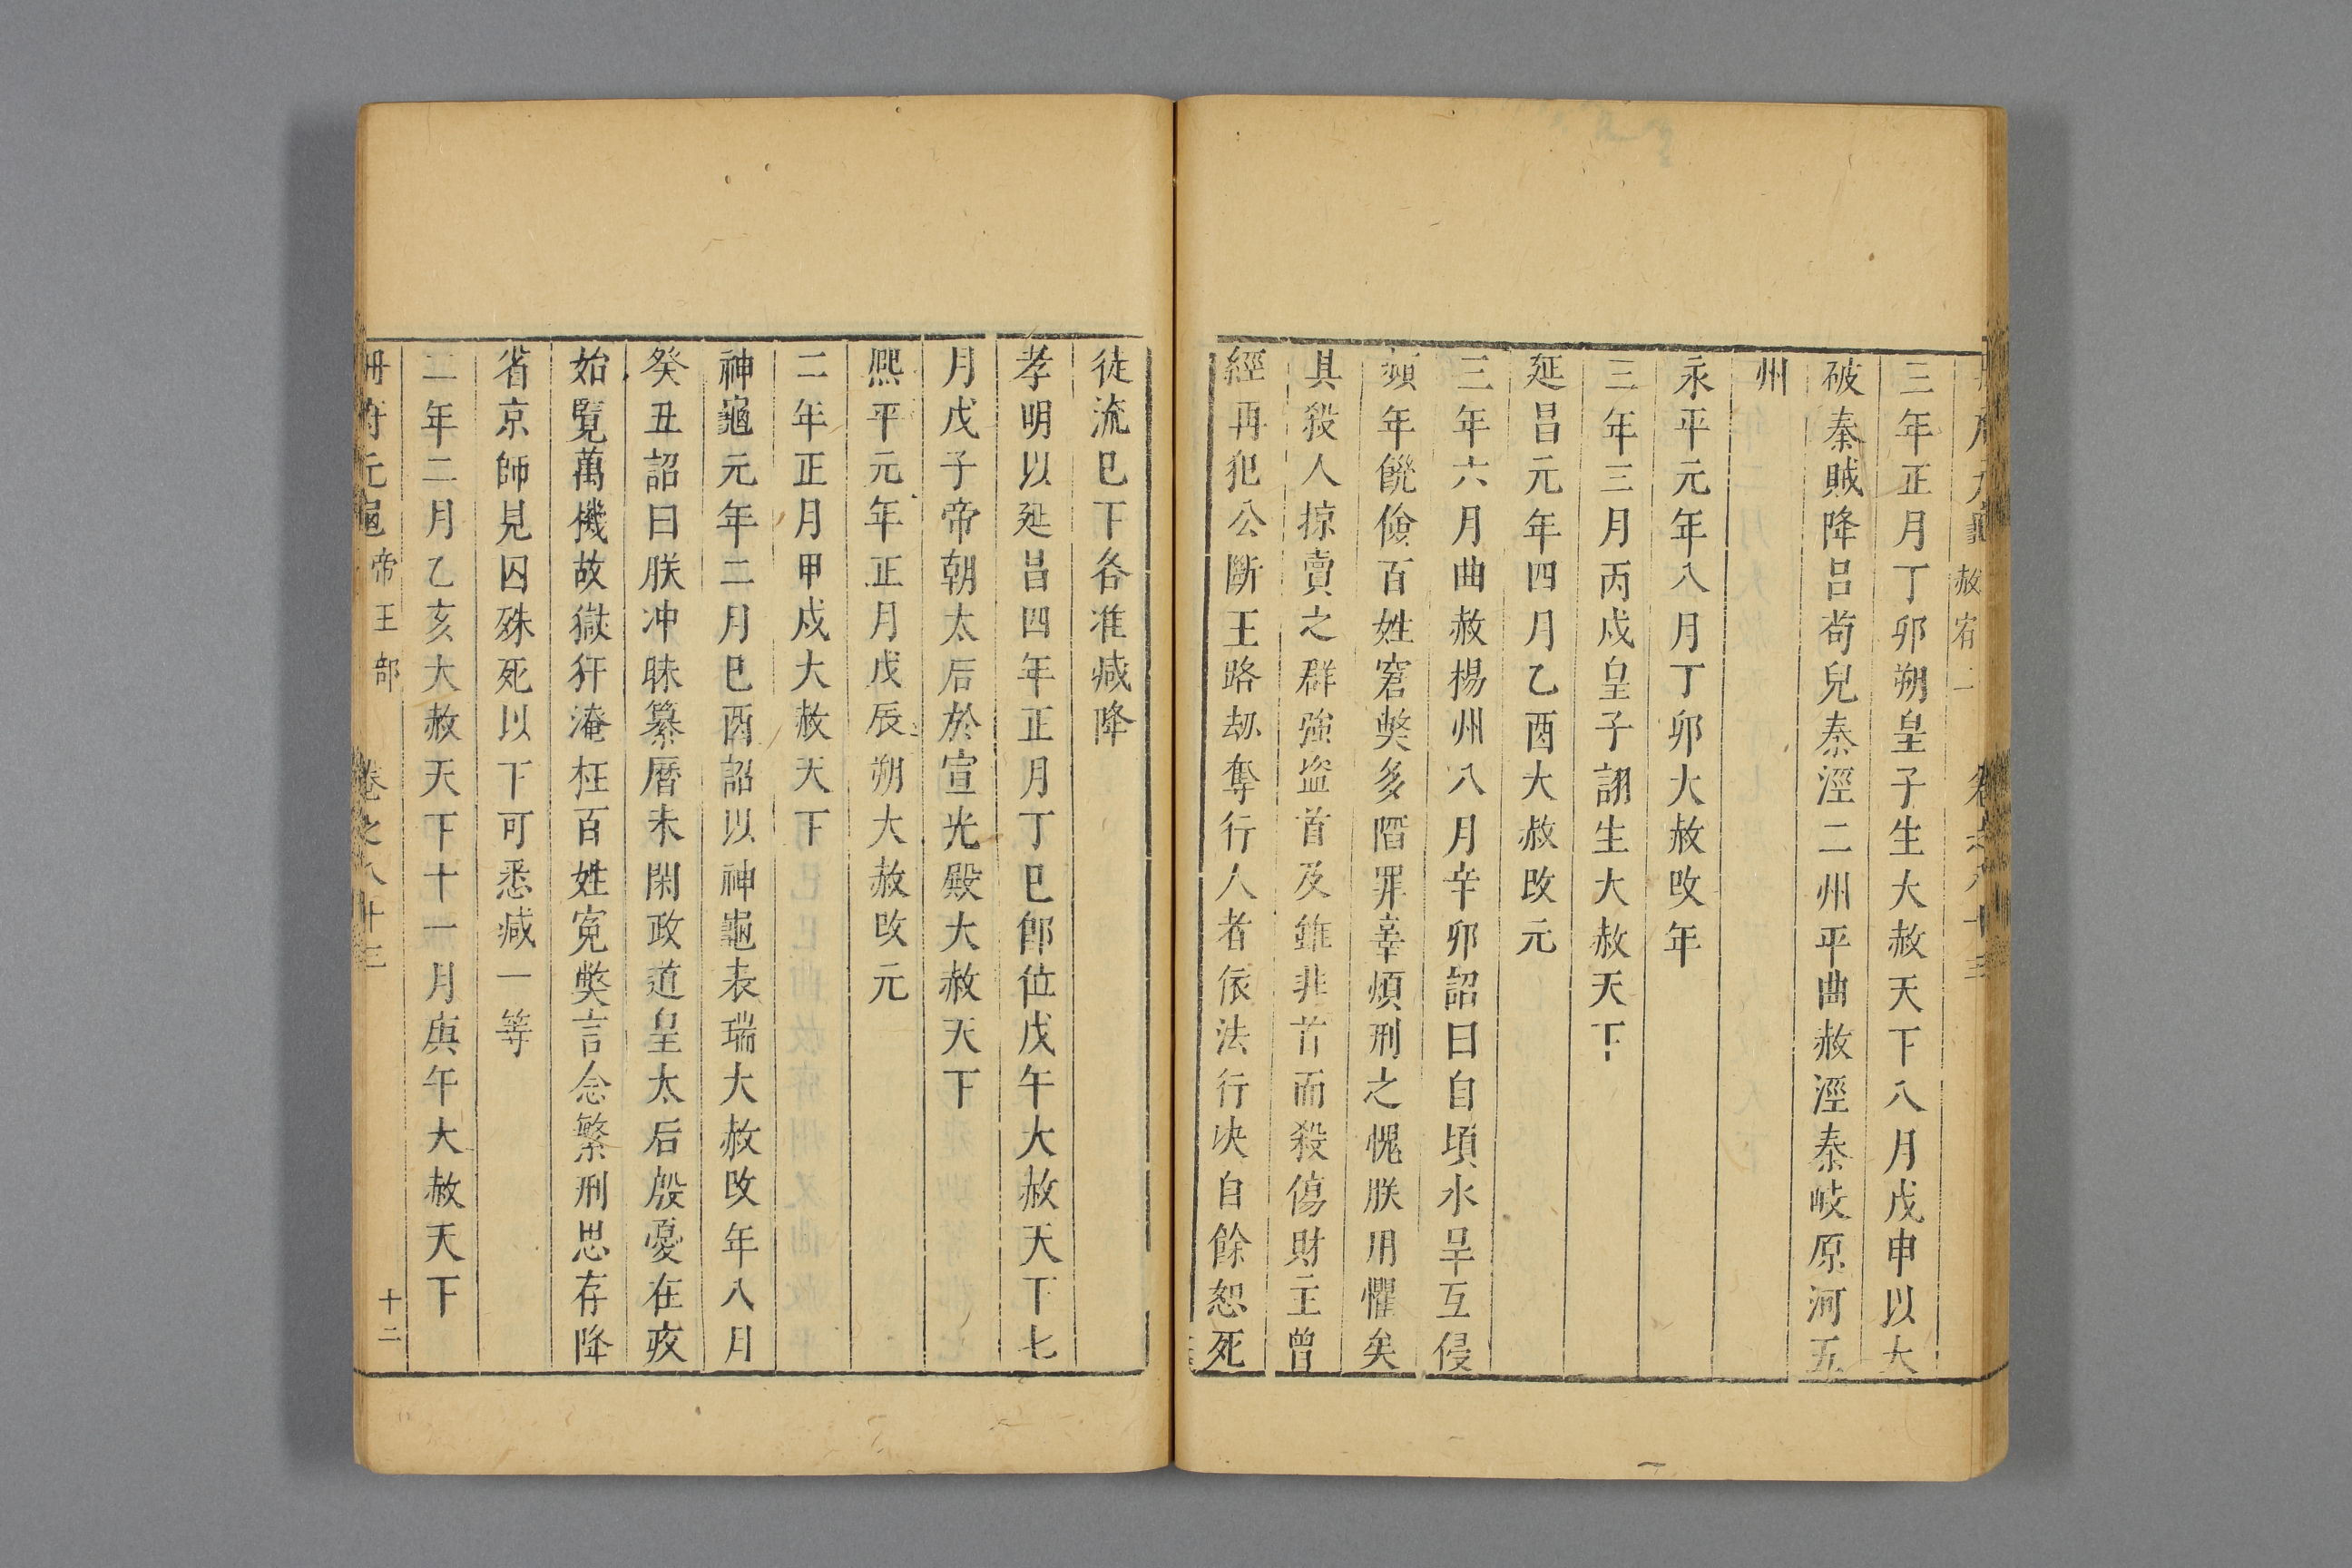 冊府元龜 赦宥二 卷之八十三
三年正月丁卯朔皇子生大赦天下八月戊申以大
破秦賊降呂苟兒秦涇二州平曲赦涇秦岐原河五
州
永平元年八月丁卯大赦改年
三年三月丙戍皇子詡生大赦天下
延昌元年四月乙酉大赦改元
三年六月曲赦揚州八月辛卯詔曰自頃水旱互侵
頻年饑儉百姓窘獘多陷罪辜煩刑之愧朕用懼矣
其殺人掠賣之群強盜首及雖非首而殺傷財主曾
經再犯公斷王路劫奪行人者依法行决自餘恕死
徒流巳下各准减降
孝明以延昌四年正月丁巳卽位戊午大赦天下七
月戊子帝朝太后於宣光殿大赦天下
熙平元年正月戊辰朔大赦改元
二年正月甲戍大赦天下
神龜元年二月巳酉詔以神龜表瑞大赦改年八月
癸丑詔曰朕冲昧纂曆未閑政道皇太后殷憂在疚
始覽萬機故獄犴淹枉百姓寃獘言念繁刑思存降
省京師見囚殊死以下可悉减一等
二年二月乙亥大赦天下十一月庚午大赦天下
冊府元龜 帝王部 卷之八十三 十二